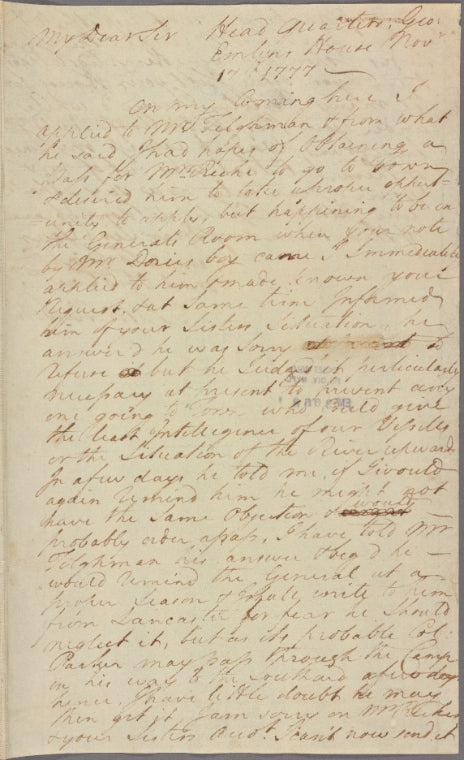 My Dear Sir Head Quarters, Geo:
Emlins House Novr
17th 1777
On my Coming here I
applied to Mr Tilghman & from what
he said I had hopes of Obtaining a
Pass for Mrs to go to Town
& desired him to take a proper opport-
unity to apply, but happening to be in
the Generals Room when your note
by Mr boy came I Immediately
applied to him & made known your
Request & at same time Informed
him of your Sisters Situation, he
answer'd he was Sorry to
refuse but he Judged it particularly
necessary at present to prevent any
one going to Town who could give
the least Intelligence of our Vessels
or the Situation of the River upward
In a few days he told me if I would
again Remind him he might not
have the same Objection & would
probably order a pass, I have told Mr
Tilghman his answer & beg'd he
would remind the General at a
proper Season & shall write to him
from Lancaster for fear he Should
neglect it, but as its probable Col:
Parker may pass through the Camp
on his way to the Southard a few days
hence I have little doubt he may
then get it, I am sorry on Mrs
& your Sisters Acct I cant now send it